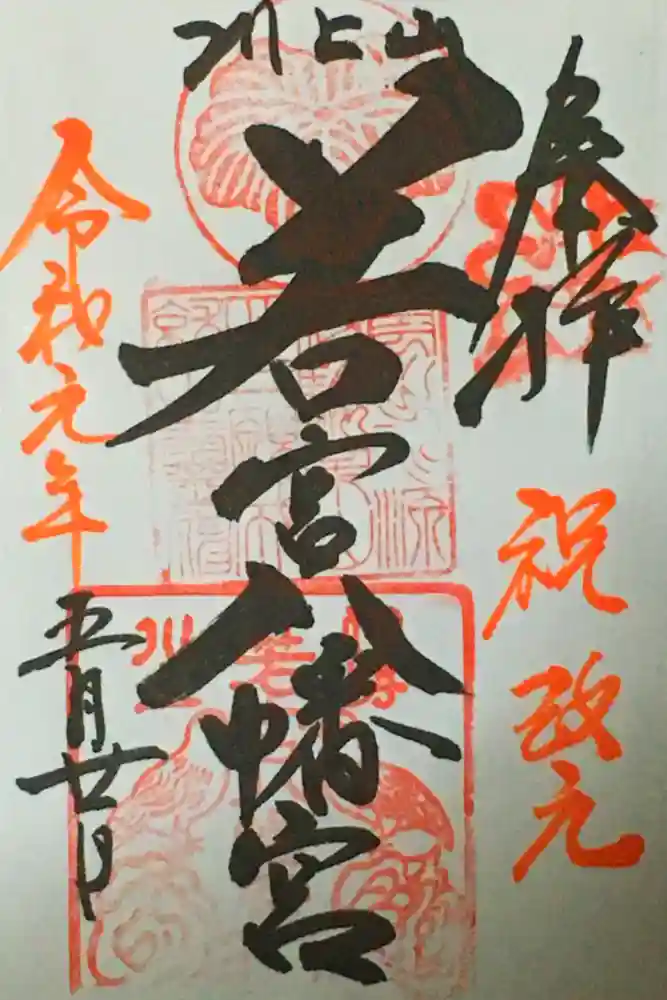 奉拝
祝 改元
川上山
若宮八幡宮
令和元年
五月廿日